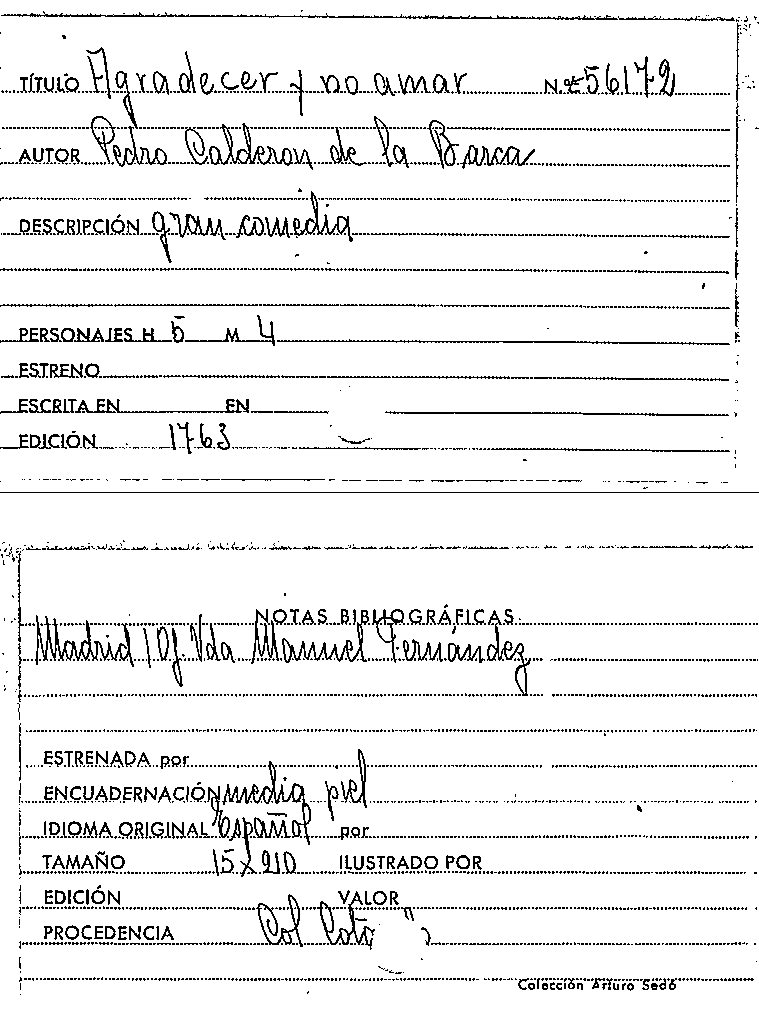 TÍTULO Agradecer y no amar Nº 56172
AUTOR Pedro Calderon de la Barca
DESCRIPCIÓN gran comedia
PERSONAJES H 5 M 4
ESTRENO
ESCRITA EN EN
EDICIÓN 1763
NOTAS BIBLIOGRÁFICAS
Madrid / Of. Vda Manuel Fernández
ESTRENADA por
ENCUADERNACIÓN media piel
IDIOMA ORIGINAL Español por
TAMAÑO 15 x 210 ILUSTRADO POR
EDICIÓN VALOR
PROCEDENCIA Col
Colección Arturo Sedó